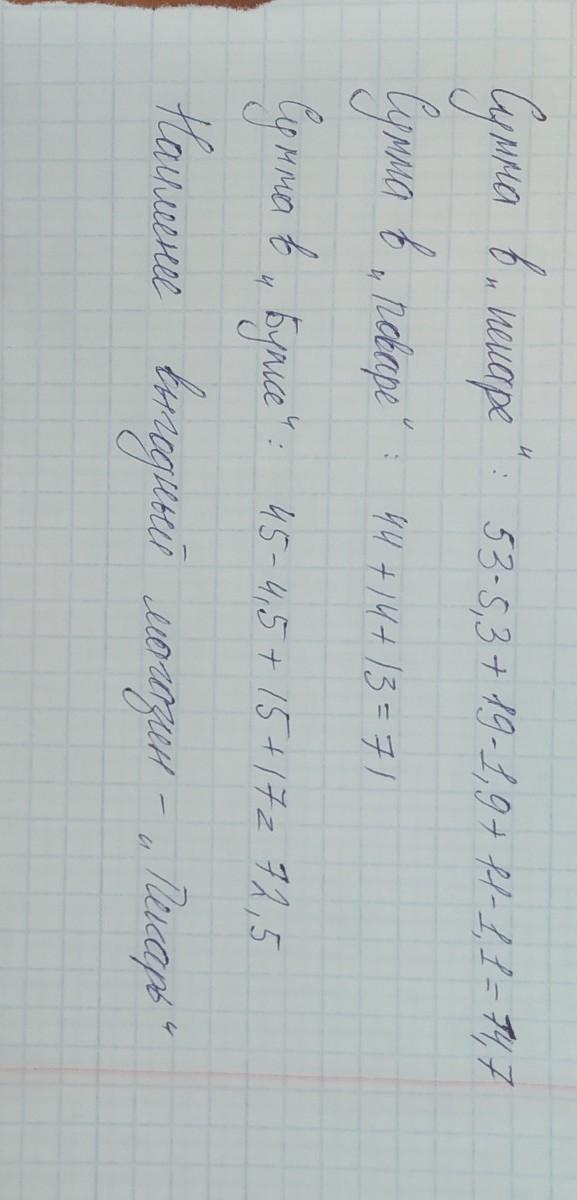 Сумма в „пекаре“: 53-5,3+19-1,9+11-1,1=74,7
Сумма в „Поваре“: 44+14+13=71
Сумма в „Булке“: 45-4,5+15+17=72,5
Наименее выгодный магазин - „Пекарь“